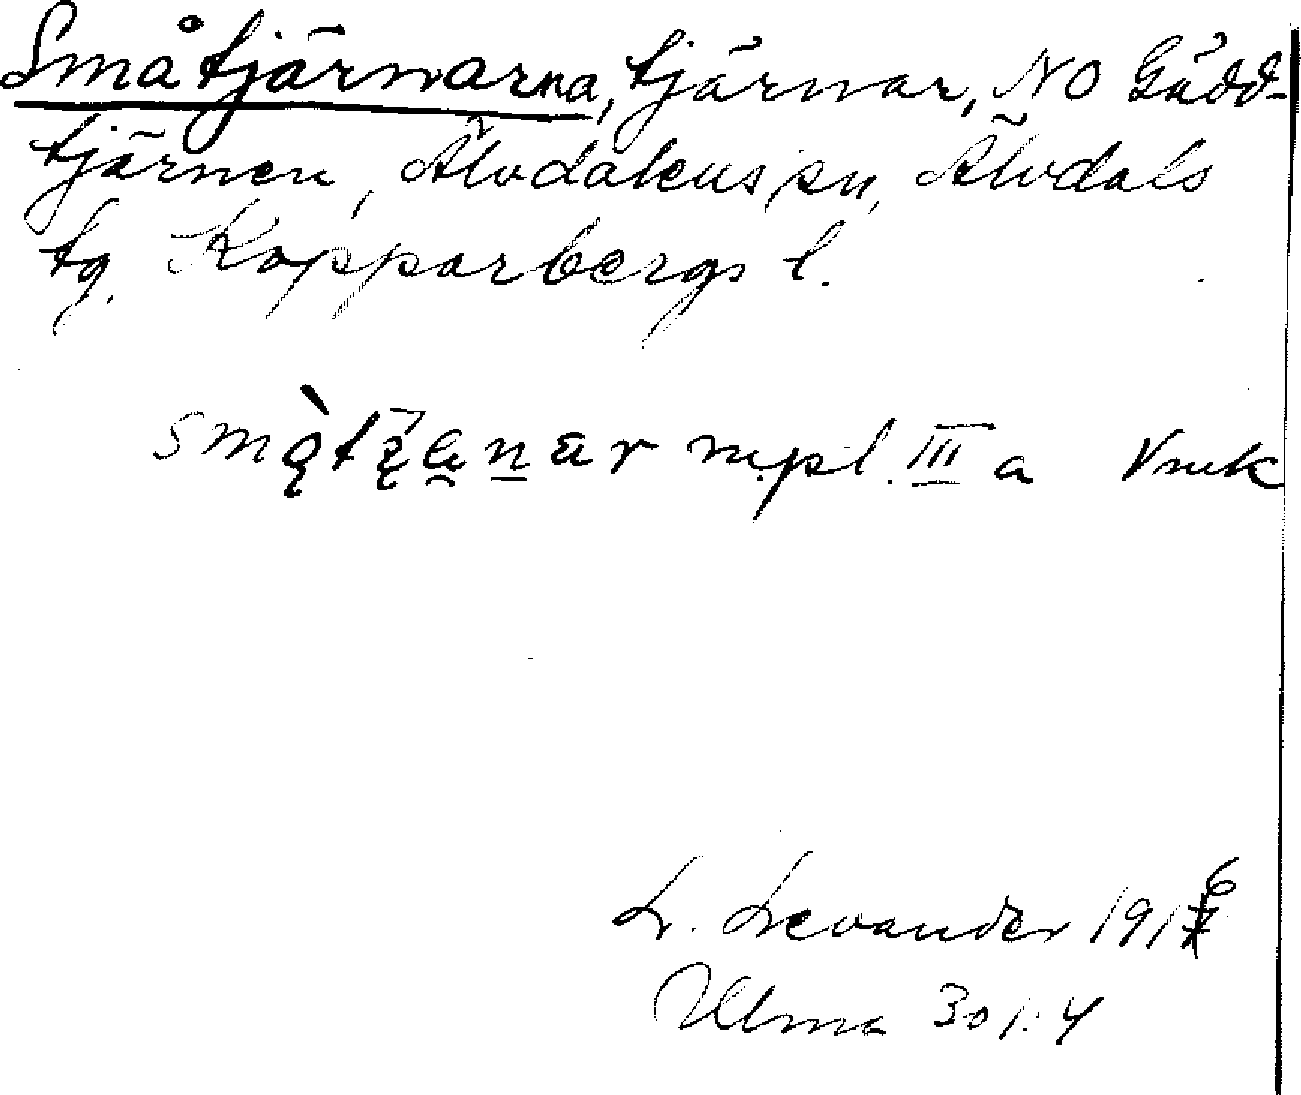 Småtjärnarna, tjärnar, NO Gädd-
tjärnen, Älvdalens sn, Älvdals
tg, Kopparbergs l.
m.pl. III a Vmk
L. Levander 1916
Ulma 301:4